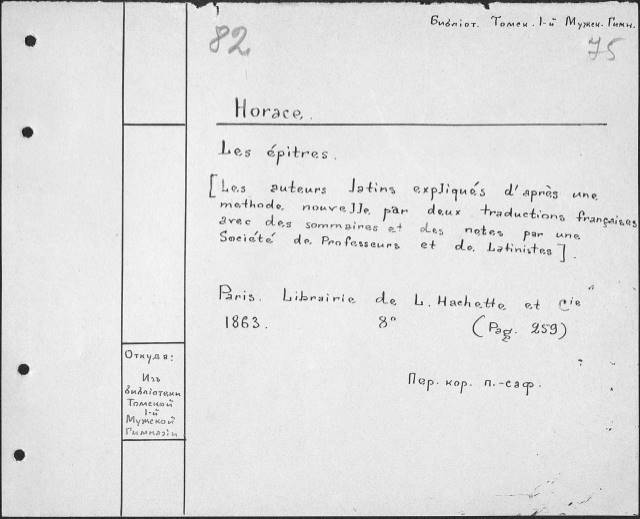 Библіот. Томск. 1-й Мужск. Гимн.
82
75
Horace.
Les épitres.
[Les auteurs latins expliqués d'après une
methode nouvelle par deux traductions françaises
avec des sommaires et des notes par une
Société de Professeurs et de Latinistes].
Paris. Librairie de L. Hachette et Cie
1863. 8° (Pag. 259)
Пер. кор. п.-саф.
Откуда:
Изъ
библіотеки
Томской
1-й
Мужской
Гимназіи